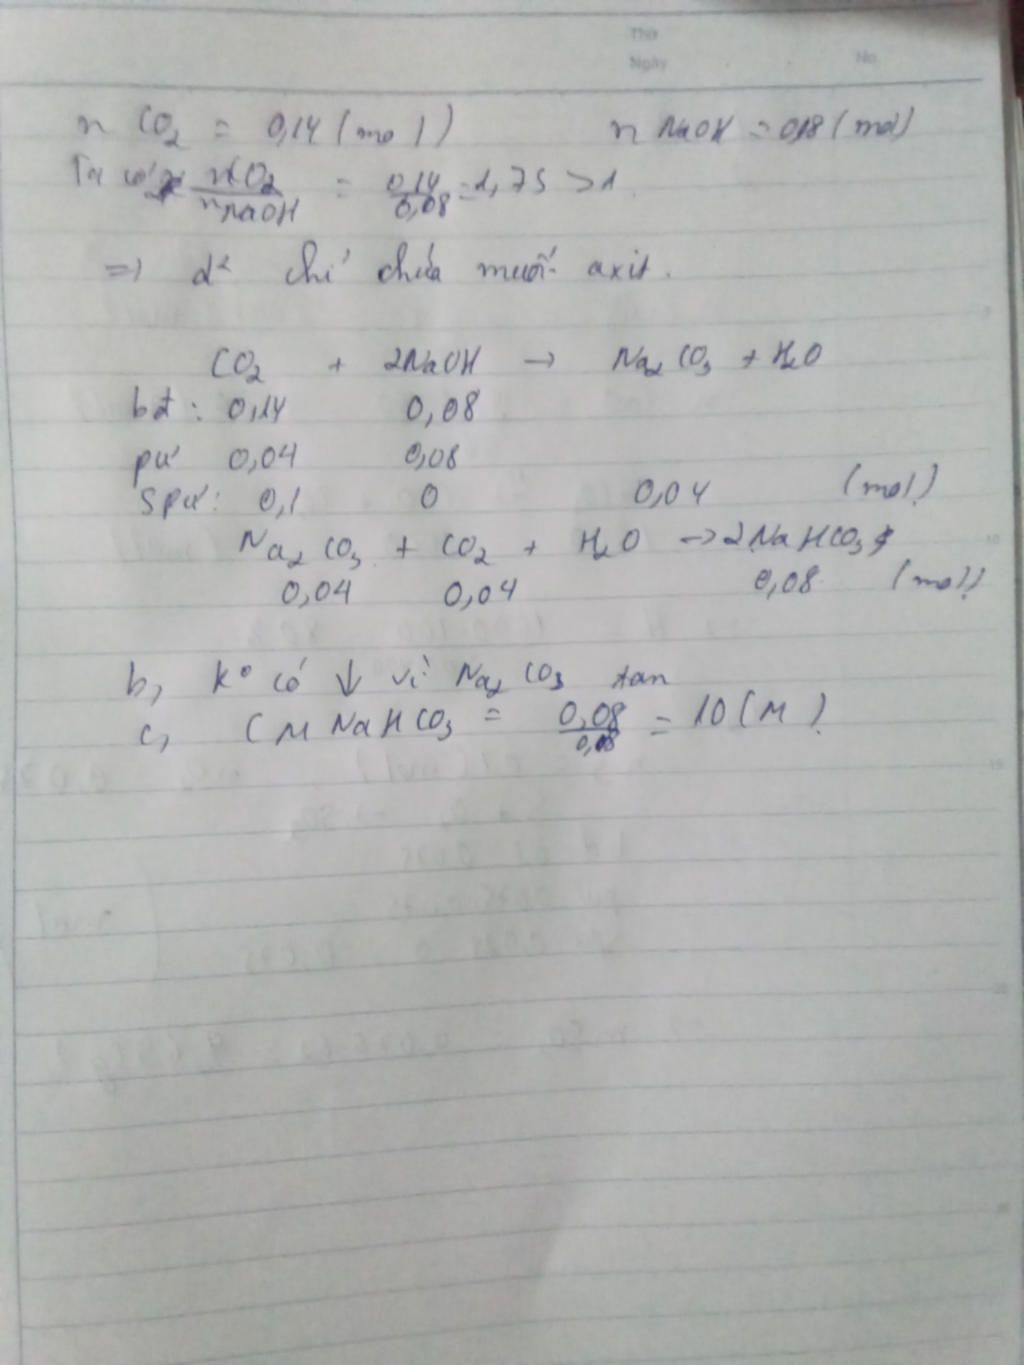 Thứ
Ngày No
n CO2 = 0,14 (mol) n NaOH = 0,08 (mol)
Ta có nCO2/nNaOH = 0,14/0,08 = 1,75 > 1.
=> d² chỉ chứa muối axit.
CO2 + 2NaOH → Na2CO3 + H2O
bđ: 0,14 0,08
pư 0,04 0,08
spư: 0,1 0 0,04 (mol)
Na2CO3 + CO2 + H2O → 2NaHCO3
0,04 0,04 0,08 (mol)
b, k° có ↓ vì Na2CO3 tan
c, CM NaHCO3 = 0,08/0,08 = 10 (M)